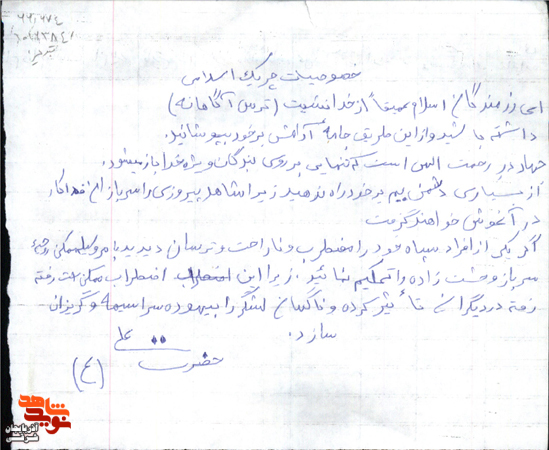 خصوصیات چریک اسلامی
ای رزمندگان اسلام عمیقاً از خدا خشیت (ترس آگاهانه)
داشته باشید و از این طریق جامه آرامش بر خود بپوشانید.
جهاد درِ رحمت الهی است که تنهایی بر روی بندگان ویژه خدا باز میشود.
از بسیاری دشمن بیم بر خود راه ندهید زیرا شاهد پیروزی را سربازان فداکار
در آغوش خواهند گرفت
اگر یکی از افراد سپاه خود را مضطرب و ناراحت و ترسان دیدید با هر وسیله ممکن روحیه
سرباز وحشت زده را تحکیم نمائید. زیرا این اضطراب ممکن است رفته
رفته در دیگران تأثیر کرده و ناگهان لشگر را بیهوده سراسیمه و گریزان
سازد.
حضرت علی (ع)
شاهد
نوید
آذربایجان
شرقی